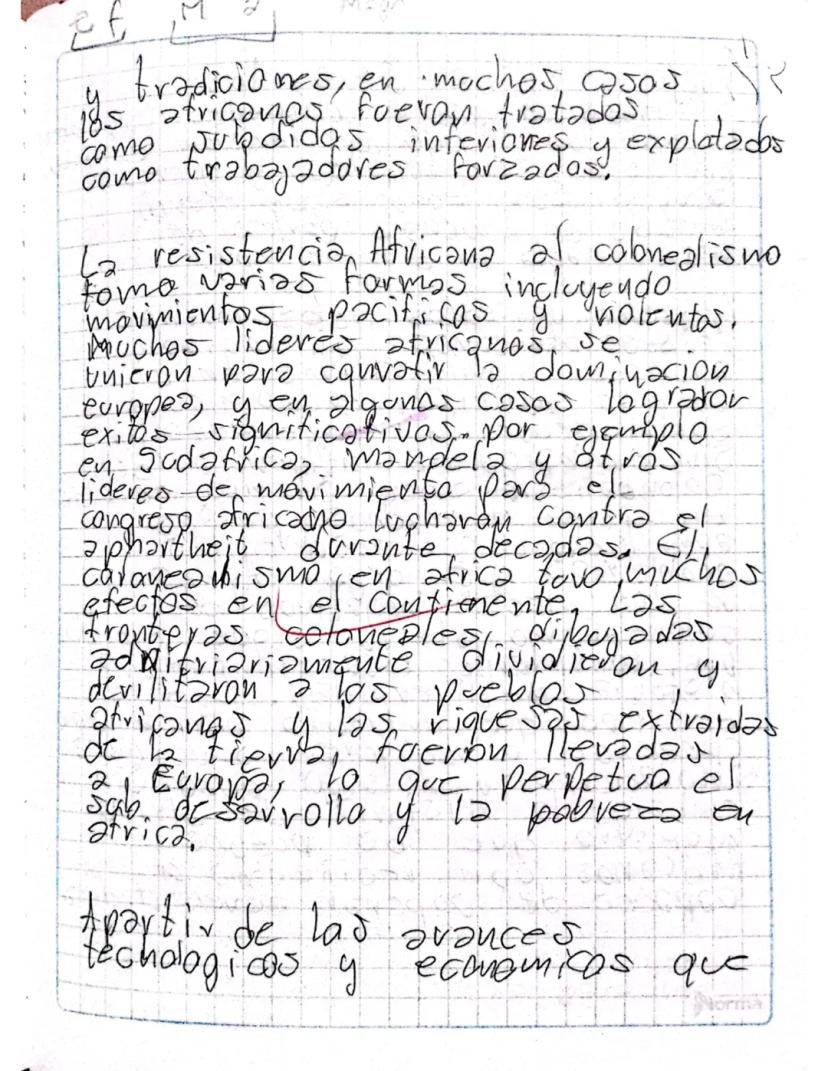 y tradiciones, en muchos casos
los africanos fueron tratados
como subdidos inferiores y explotados
como trabajadores forzados.
La resistencia Africana al colonealismo
tomo varias formas incluyendo
movimientos pacificos y violentos.
Muchos lideres africanos se
unieron para convatir la dominacion
europea, y en algunos casos lograron
exitos significativos. por ejemplo
en sudafrica, mandela y otros
lideres de movimiento para el
congreso africano lucharon contra el
aphartheit durante decadas. El
colonealismo en africa tuvo muchos
efectos en el contienente. Las
fronteras coloneales, dibujadas
dividieron y
devilitaron a los pueblos
africanos y las riquesas extraidas
de la tierra, fueron llevadas
a Europa, lo que perpetua el
sub desarrollo y la pobreza en
africa.
Apartir de los avances
tecnologicos y economicos que
Norma